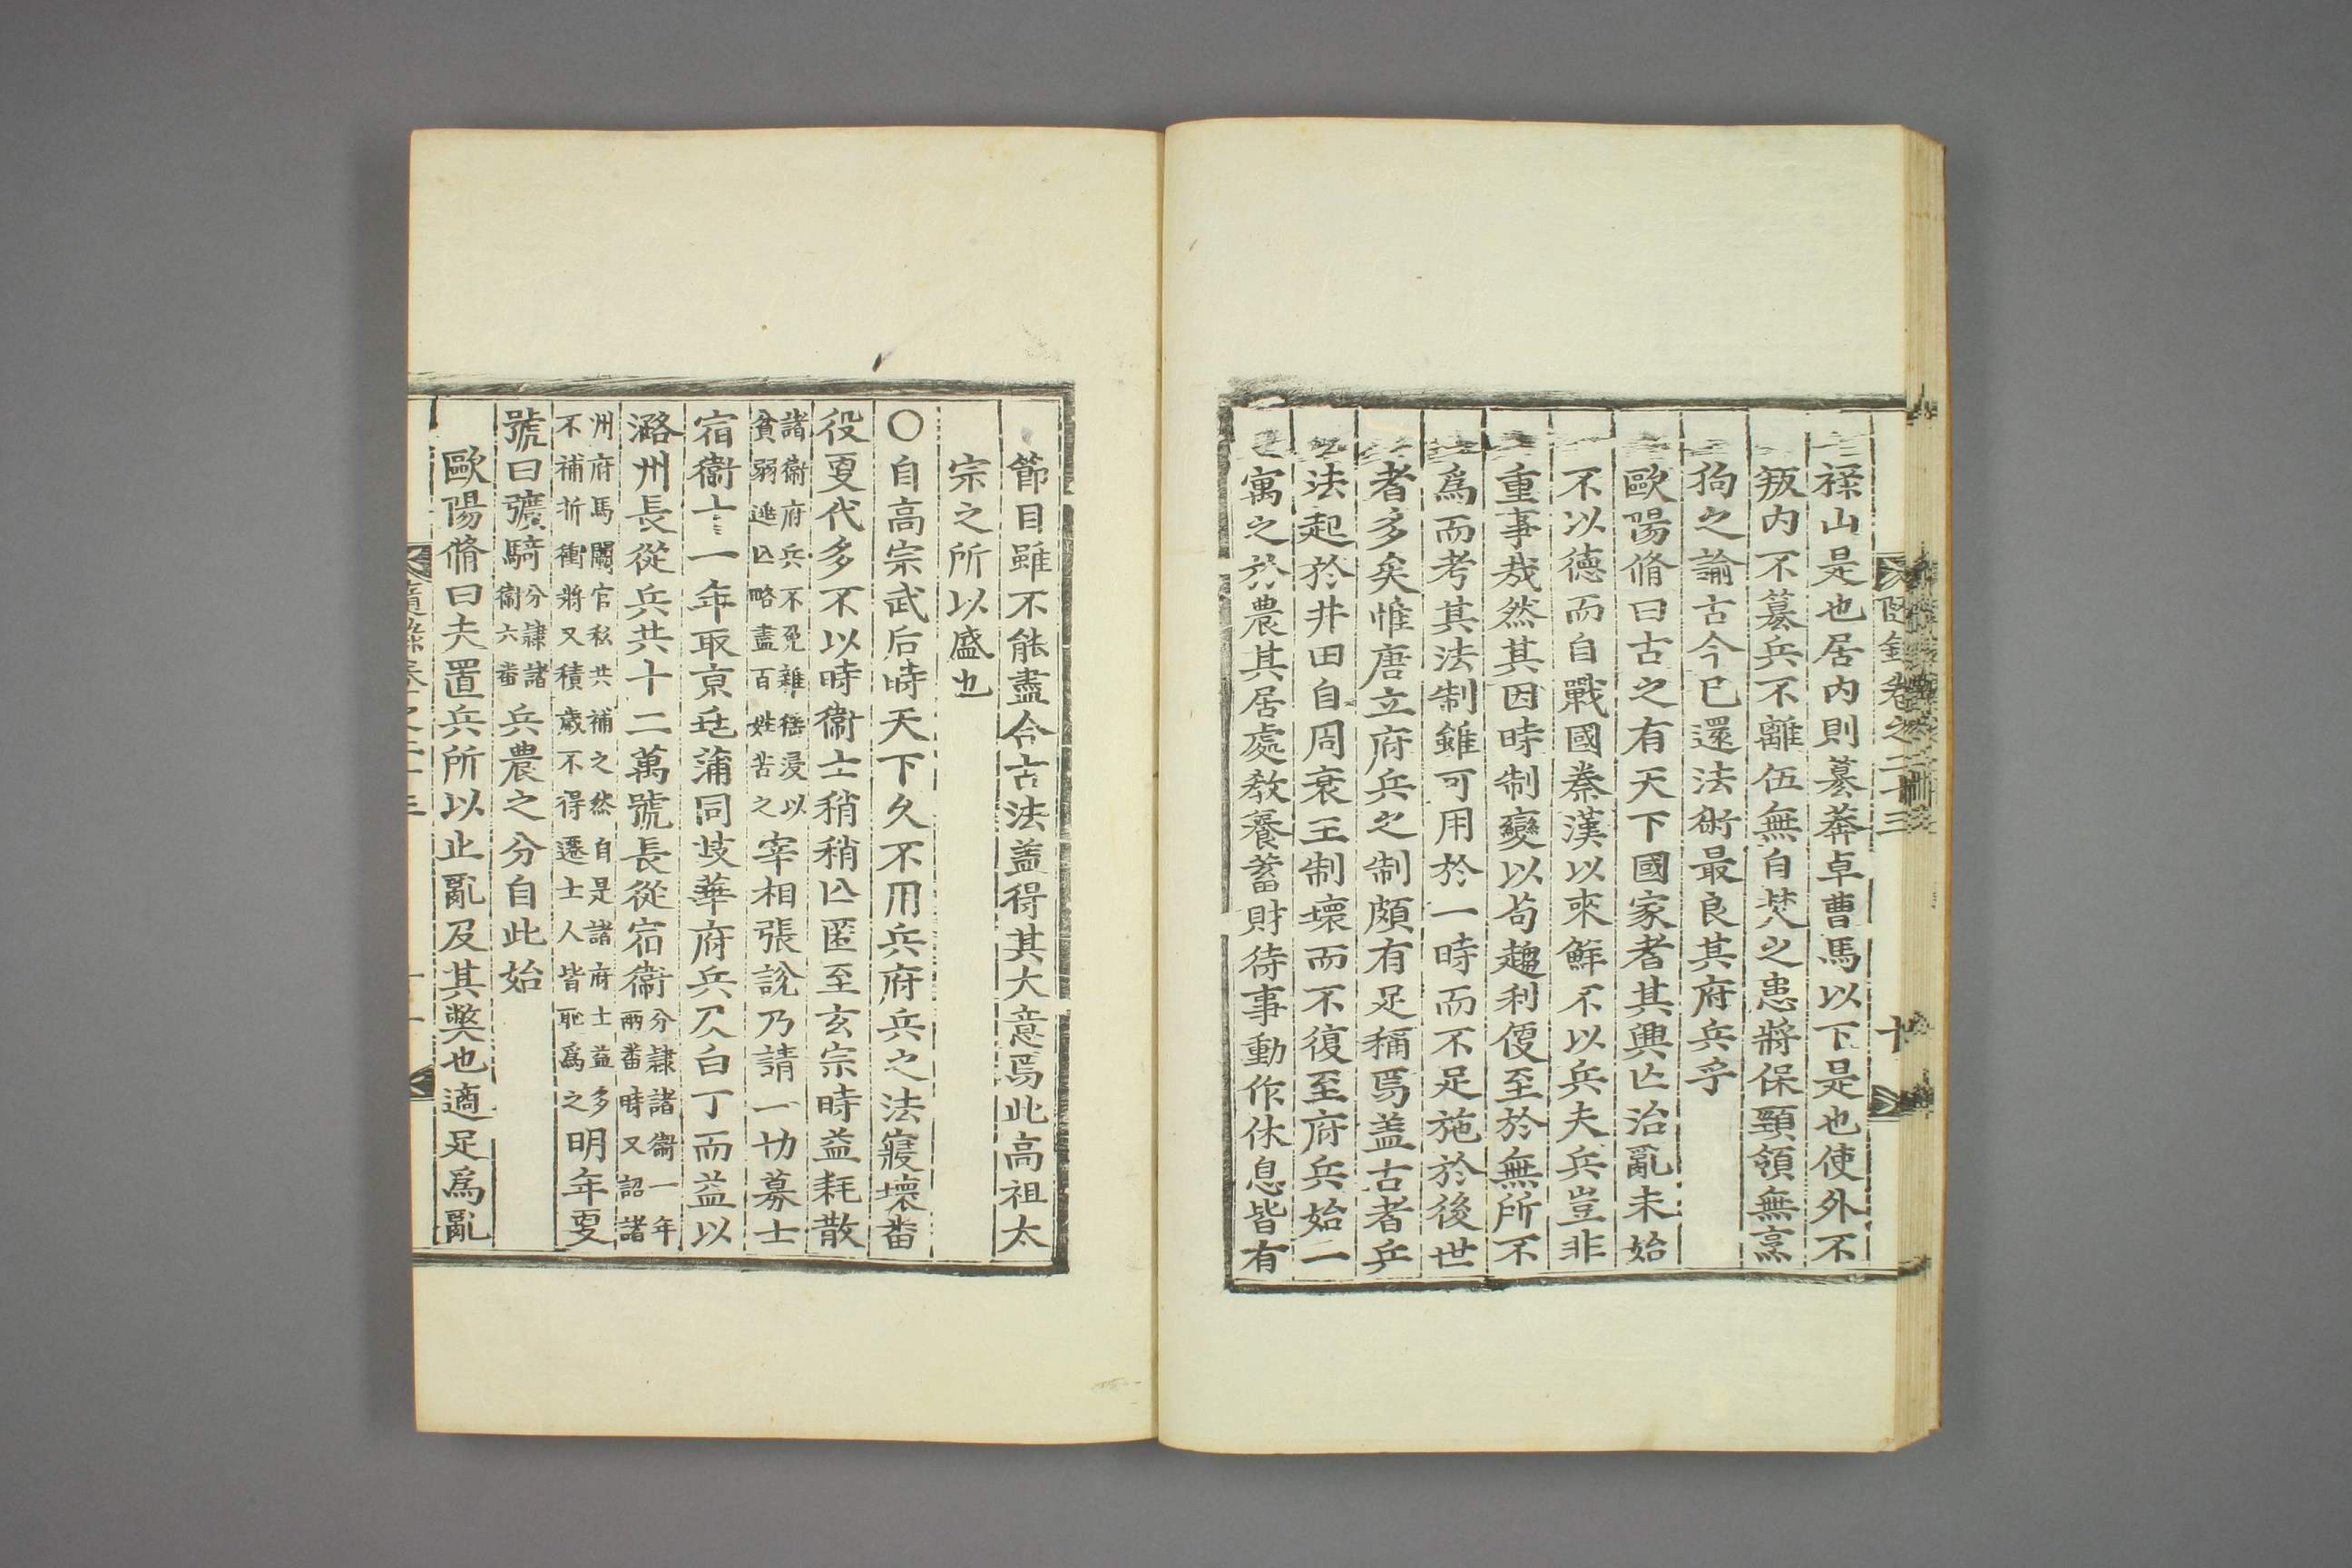 隨錄卷之二十三 十
祿山是也居內則纂莽卓曹馬以下是也使外不
叛內不簒兵不離伍無自焚之患將保頸領無烹
狗之諭古今已還法術最良其府兵乎
歐陽脩曰古之有天下國家者其興亡治亂未始
不以德而自戰國秦漢以來鮮不以兵夫兵豈非
重事哉然其因時制變以苟趨利便至於無所不
爲而考其法制雖可用於一時而不足施於後世
者多矣惟唐立府兵之制頗有足稱焉盖古者兵
法起於井田自周衰王制壞而不復至府兵始一
寓之於農其居處敎養蓄財待事動作休息皆有
節目雖不能盡合古法盖得其大意焉此高祖太
宗之所以盛也
〇自高宗武后時天下久不用兵府兵之法寢壞番
役更代多不以時衛士稍稍亡匿至玄宗時益耗散
諸衛府兵不免雜徭浸以貧弱逃亡略盡百姓苦之宰相張說乃請一切募士
宿衛十一年取京兆蒲同岐華府兵及白丁而益以
潞州長從兵共十二萬號長從宿衛分隷諸衛一年兩番時又詔諸
州府馬闕官私共補之然自是諸府士益多不補折衝將又積歲不得遷士人皆恥爲之明年更
號曰彍騎分隷諸衛六番兵農之分自此始
歐陽脩曰夫置兵所以止亂及其獘也適足爲亂
隨錄卷之二十三 十一